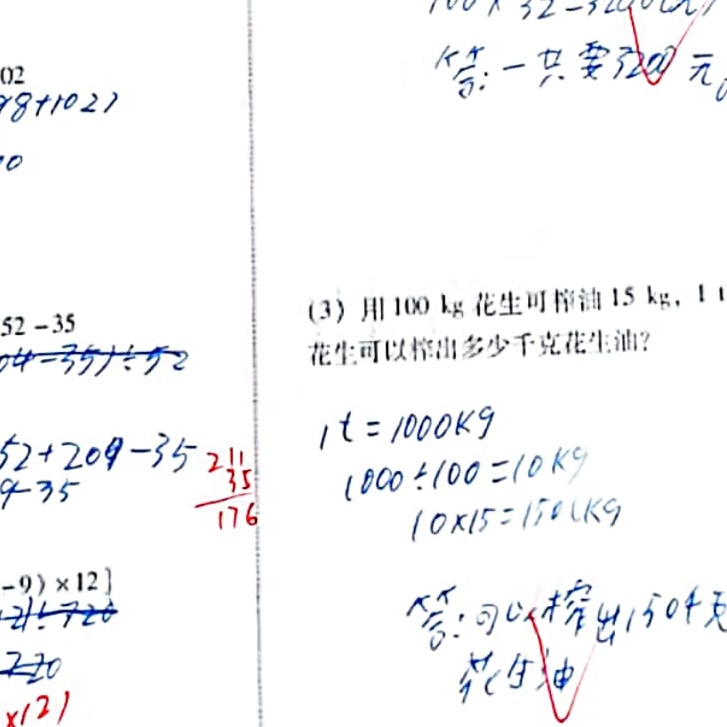 02
98+102)
0
52-35
04-35)÷52
52+209-35
9-35
211
35
176
-9)×12]
2)÷720
720
×12)
100×32=3200(元)
答:一共要3200元。
(3) 用100 kg 花生可榨油15 kg, 1 t
花生可以榨出多少千克花生油?
1t=1000Kg
1000÷100=10Kg
10×15=150(Kg
答:可以榨出150千克
花生油